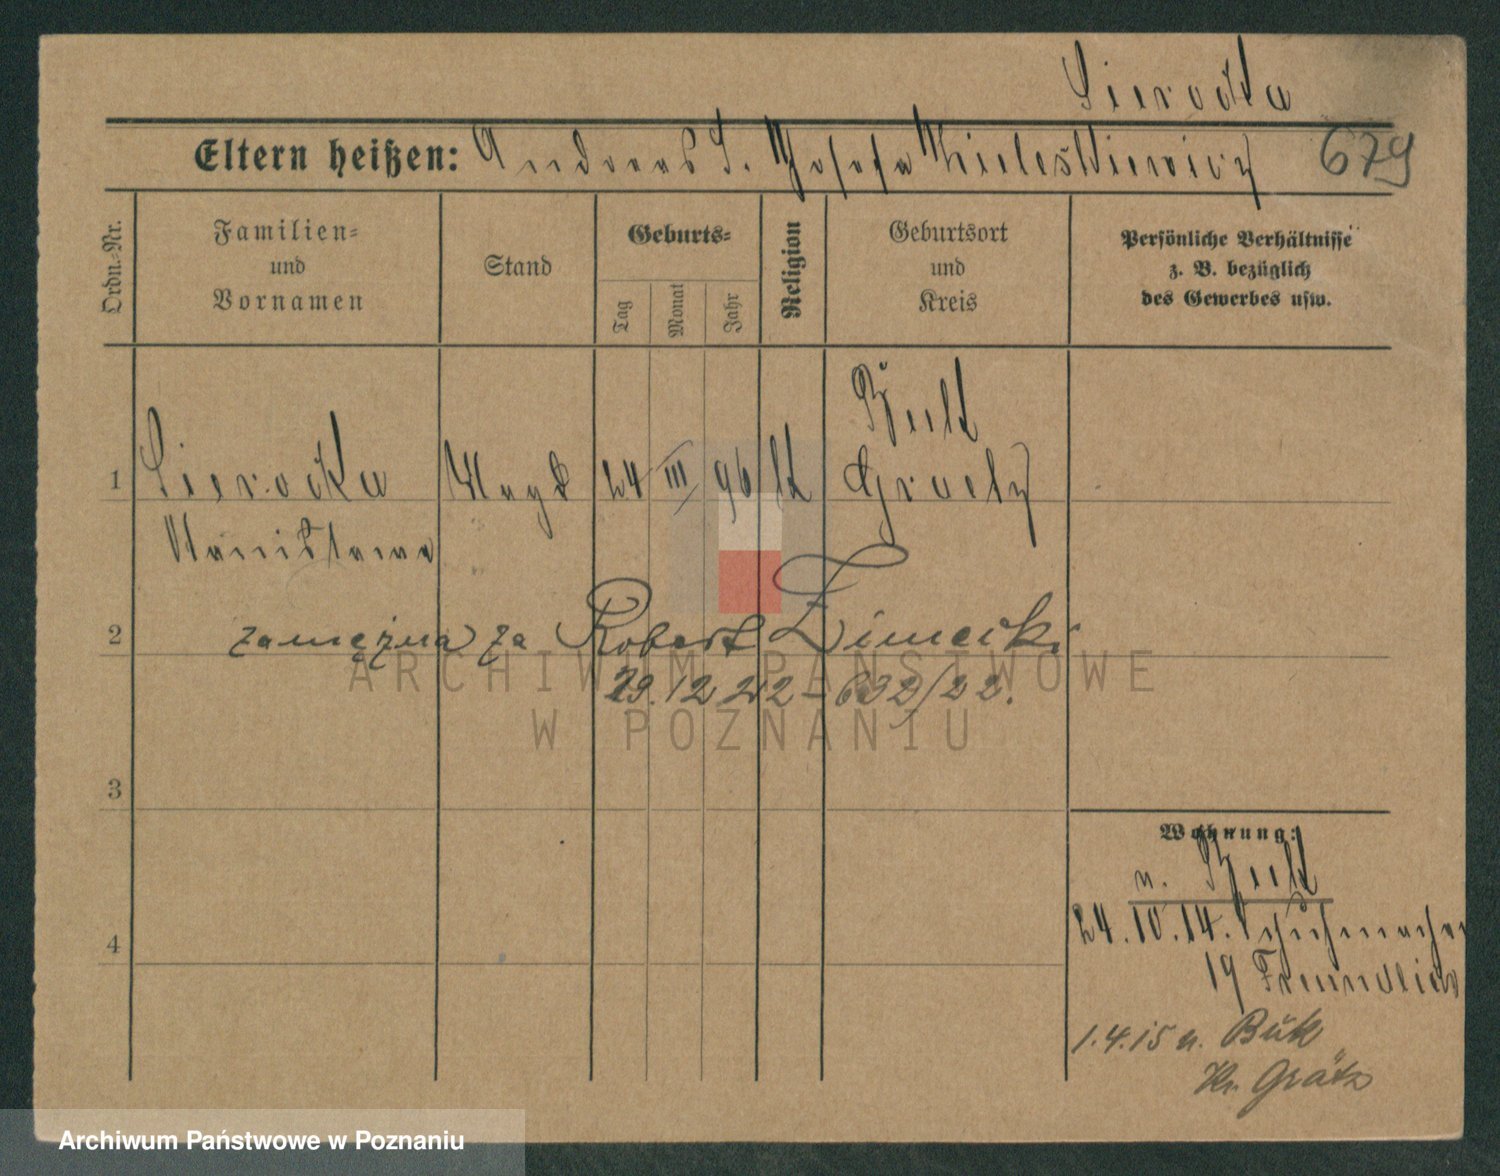 Sierocka
Eltern heißen: Andreas S. Josefa 679
Ordn.-Nr.
Familien=
und
Vornamen
Stand
Geburts=
Tag
Monat
Jahr
Religion
Geburtsort
und
Kreis
Persönliche Verhältnisse
z. B. bezüglich
des Gewerbes usw.
Buk
1 Sierocka Magd 24 III 96 kt Graetz
Stanislawa
2 zamężna za Robert
29.12 22 - 692/22.
3
4
Wohnung:
n. Buk
24.10.14. Schuhmacher
19 Freundlich
1.4.15 n. Buk
Kr. Grätz
ARCHIWUM PAŃSTWOWE
W POZNANIU
Archiwum Państwowe w Poznaniu